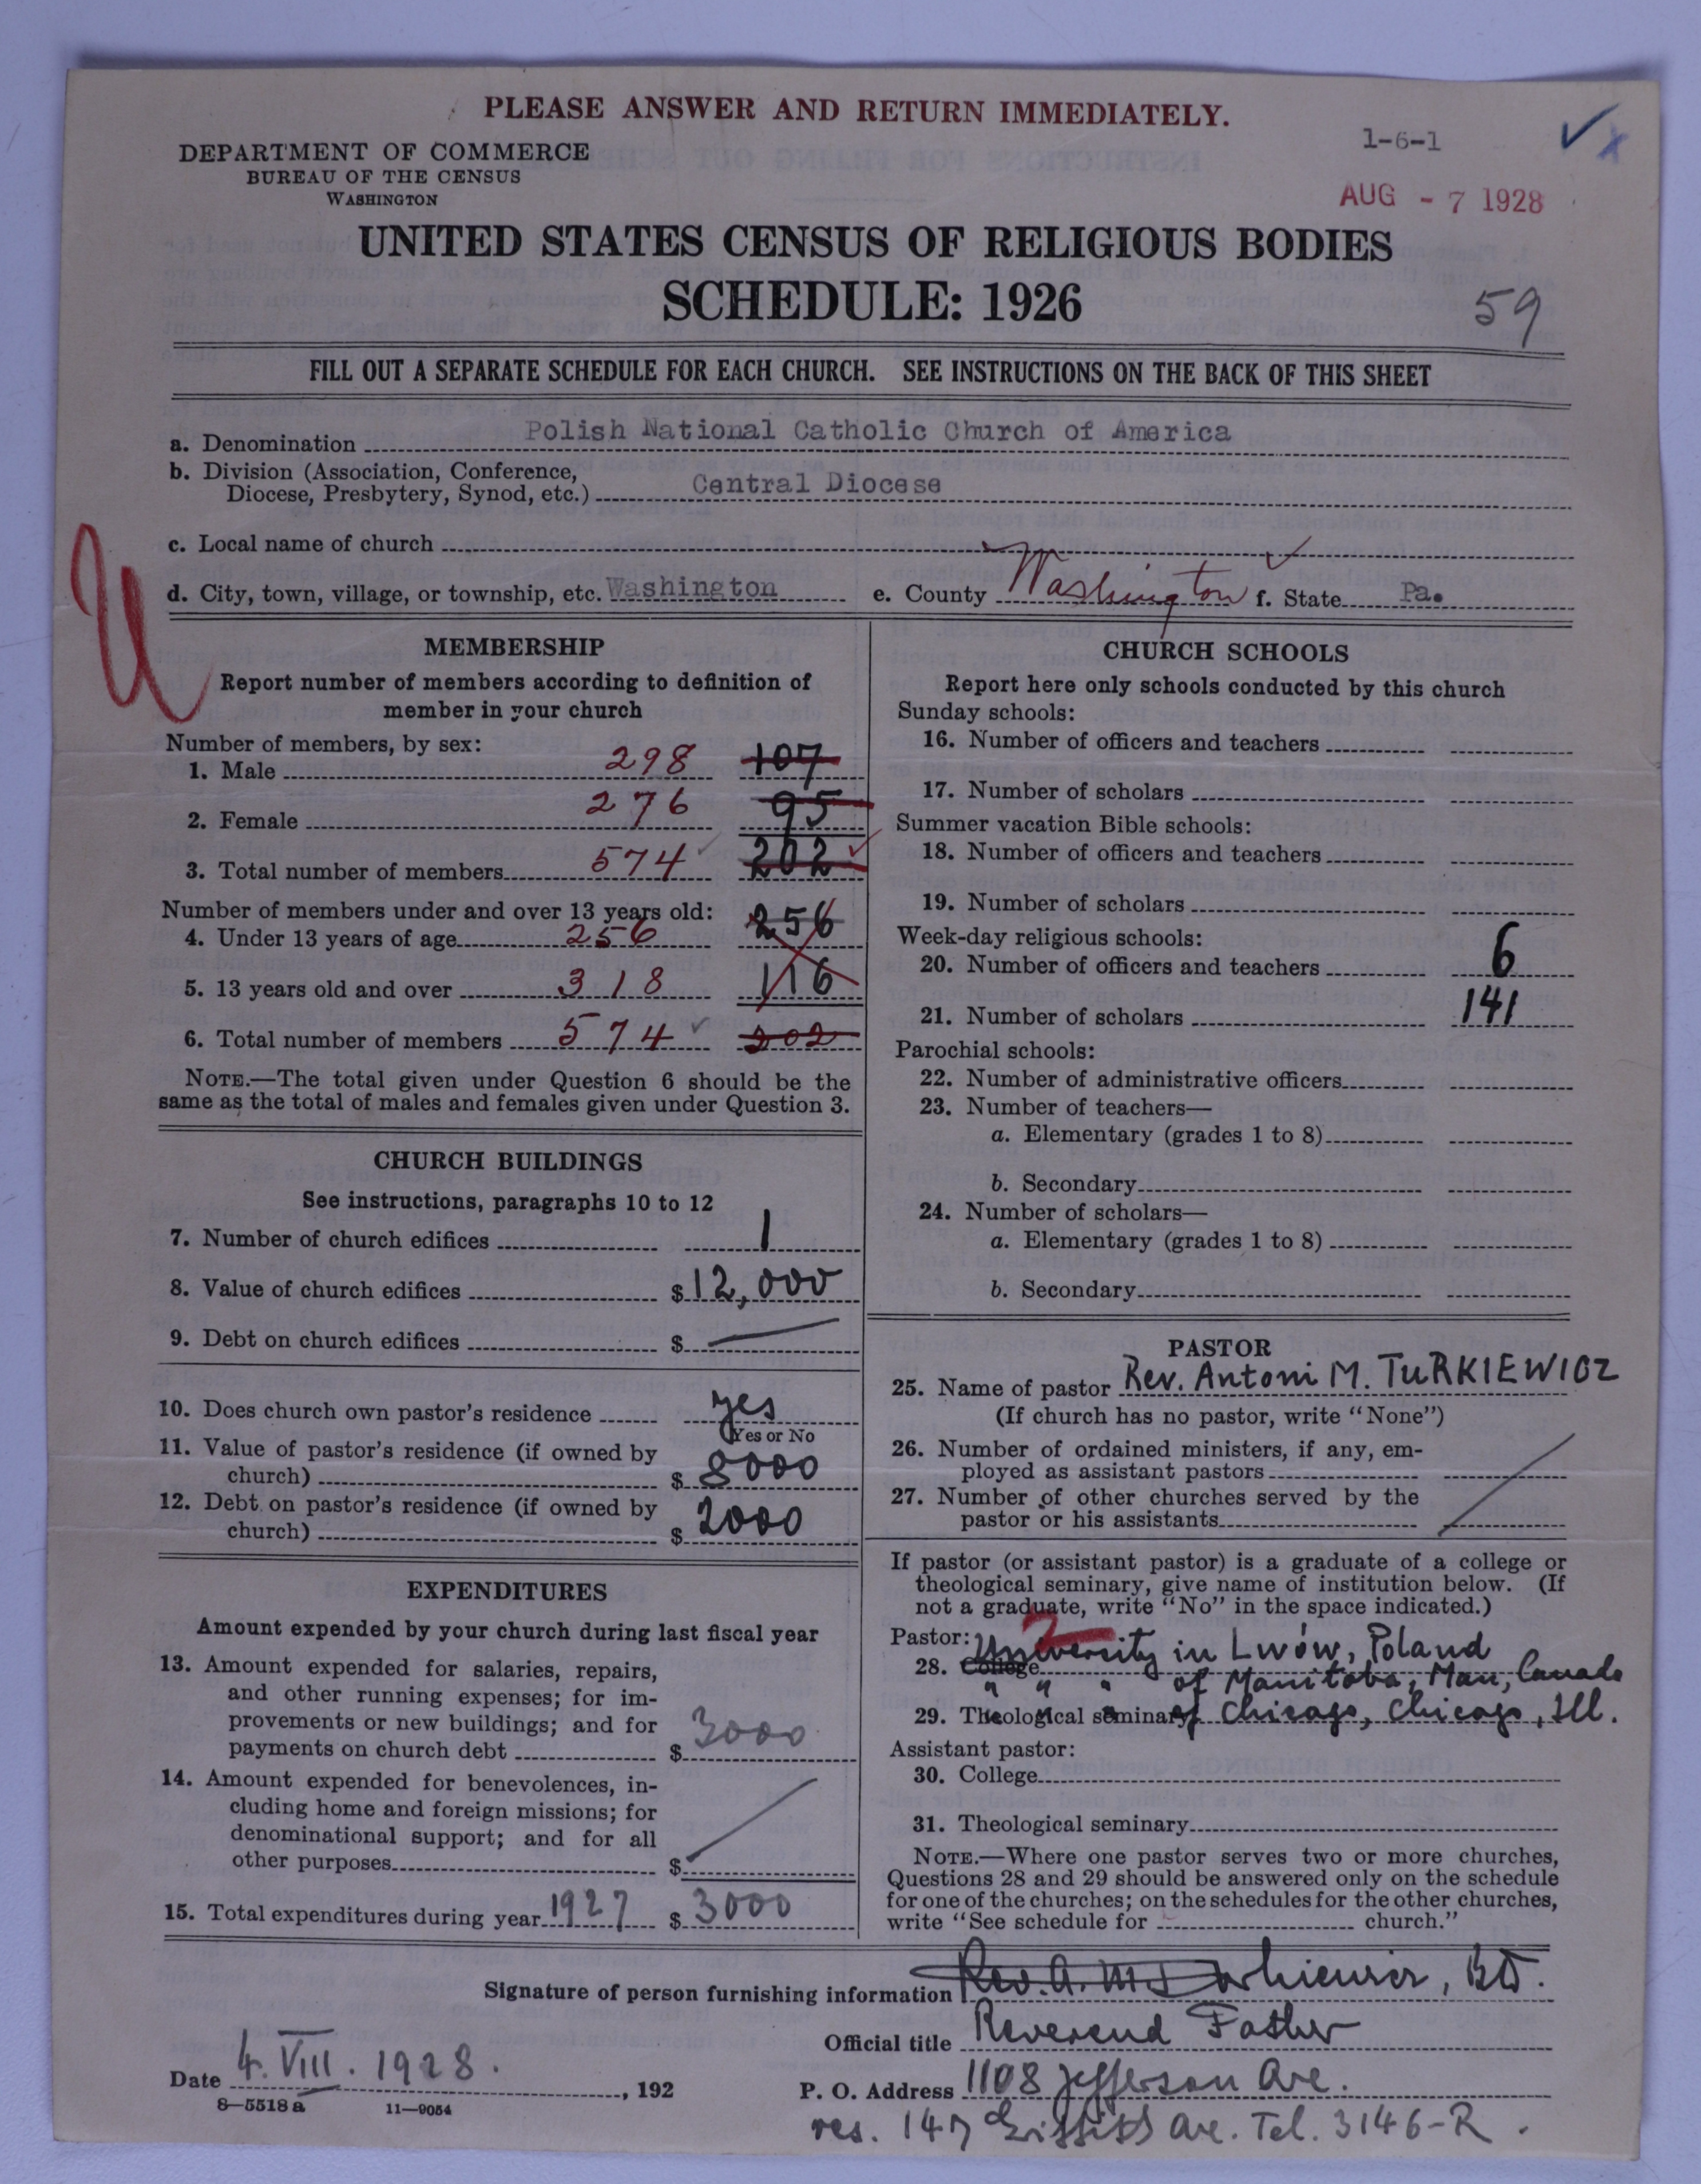 PLEASE ANSWER AND RETURN IMMEDIATELY.
1-6-1
DEPARTMENT OF COMMERCE
BUREAU OF THE CENSUS
WASHINGTON
AUG - 7 1928
UNITED STATES CENSUS OF RELIGIOUS BODIES
SCHEDULE: 1926
59
FILL OUT A SEPARATE SCHEDULE FOR EACH CHURCH. SEE INSTRUCTIONS ON THE BACK OF THIS SHEET
a. Denomination Polish National Catholic Church of America
b. Division (Association, Conference,
Diocese, Presbytery, Synod, etc.) Central Diocese
c. Local name of church
d. City, town, village, or township, etc. Washington e. County Washington f. State Pa.
MEMBERSHIP
Report number of members according to definition of
member in your church
Number of members, by sex:
1. Male 298 107
2. Female 276 95
3. Total number of members 574 202
Number of members under and over 13 years old:
4. Under 13 years of age 256 256
5. 13 years old and over 318 116
6. Total number of members 574 202
NOTE.—The total given under Question 6 should be the
same as the total of males and females given under Question 3.
CHURCH BUILDINGS
See instructions, paragraphs 10 to 12
7. Number of church edifices 1
8. Value of church edifices $12,000
9. Debt on church edifices $
10. Does church own pastor's residence yes
Yes or No
11. Value of pastor's residence (if owned by
church) $ 8000
12. Debt on pastor's residence (if owned by
church) $ 2000
EXPENDITURES
Amount expended by your church during last fiscal year
13. Amount expended for salaries, repairs,
and other running expenses; for im-
provements or new buildings; and for
payments on church debt $ 3000
14. Amount expended for benevolences, in-
cluding home and foreign missions; for
denominational support; and for all
other purposes $
15. Total expenditures during year 1927 $ 3000
CHURCH SCHOOLS
Report here only schools conducted by this church
Sunday schools:
16. Number of officers and teachers
17. Number of scholars
Summer vacation Bible schools:
18. Number of officers and teachers
19. Number of scholars
Week-day religious schools:
20. Number of officers and teachers 6
21. Number of scholars 141
Parochial schools:
22. Number of administrative officers
23. Number of teachers—
a. Elementary (grades 1 to 8)
b. Secondary
24. Number of scholars—
a. Elementary (grades 1 to 8)
b. Secondary
PASTOR
25. Name of pastor Rev. Antoni M. TURKIEWICZ
(If church has no pastor, write "None")
26. Number of ordained ministers, if any, em-
ployed as assistant pastors
27. Number of other churches served by the
pastor or his assistants
If pastor (or assistant pastor) is a graduate of a college or
theological seminary, give name of institution below. (If
not a graduate, write "No" in the space indicated.)
Pastor: University in Lwów, Poland
28. College " " " of Manitoba, Man, Canada
29. Theological seminary " " " of Chicago, Chicago, Ill.
Assistant pastor:
30. College
31. Theological seminary
NOTE.—Where one pastor serves two or more churches,
Questions 28 and 29 should be answered only on the schedule
for one of the churches; on the schedules for the other churches,
write "See schedule for church."
Signature of person furnishing information Rev. A. M. Turkiewicz, BD.
Official title Reverend Father
Date 4. VIII. 1928. , 192
P. O. Address 1108 Jefferson Ave.
8—5518 a 11—9054
res. 147 Griffith Ave. Tel. 3146-R.